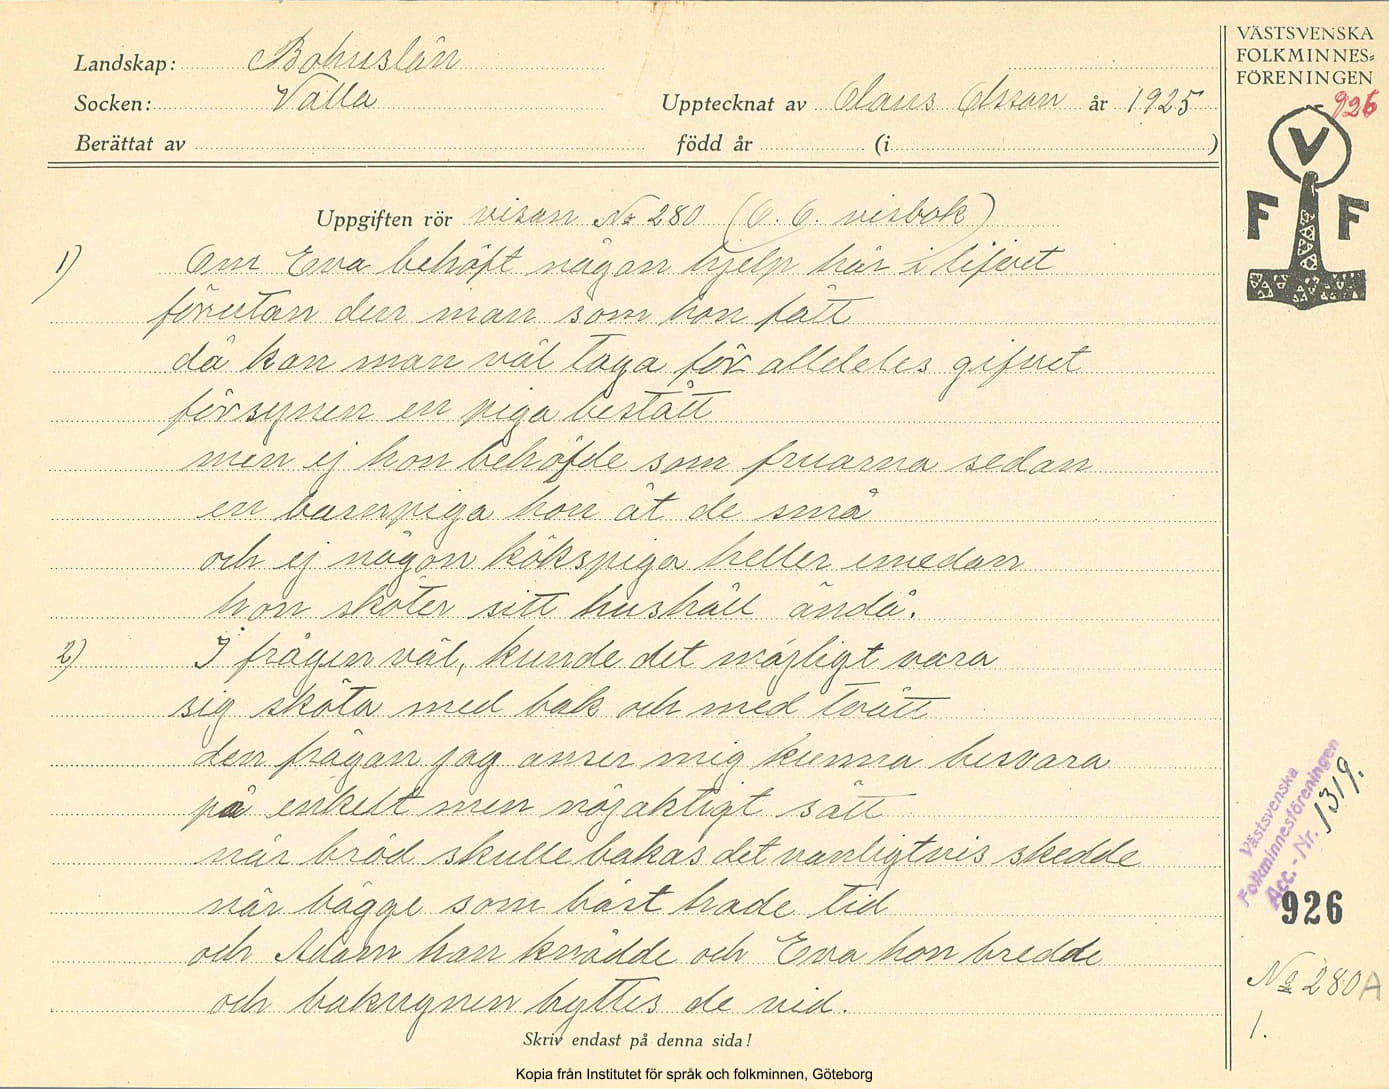 Landskap: Bohuslän
Socken: Valla
Upptecknat av Olaus Olsson år 1925
Berättat av
född år (i )
VÄSTSVENSKA
FOLKMINNES-
FÖRENINGEN
926
V
F F
Uppgiften rör visan No 280 (O. O. visbok)
1) Om Eva behöft någon hjelp här i lifvet
förutan den man som hon fått
då kan man väl taga för alldeles gifvet
försynen en piga bestått
men ej hon behöfde som fruarna sedan
en barnpiga hon åt de små
och ej någon kökspiga heller emedan
hon sköter sitt hushåll ändå.
2) I frågen väl, kunde det möjligt vara
sig sköta med bak och med tvätt
den frågan jag anser mig kunna besvara
på enkelt men nöjaktigt sätt
när bröd skulle bakas det vanligtvis skedde
när bägge som bäst hade tid
och Adam han knådde och Eva hon bredde
och bakugnen hyttes de vid.
Västsvenska
Folkminnesföreningen
Acc.-Nr. 1319.
926
No 280A
1.
Skriv endast på denna sida!
Kopia från Institutet för språk och folkminnen, Göteborg